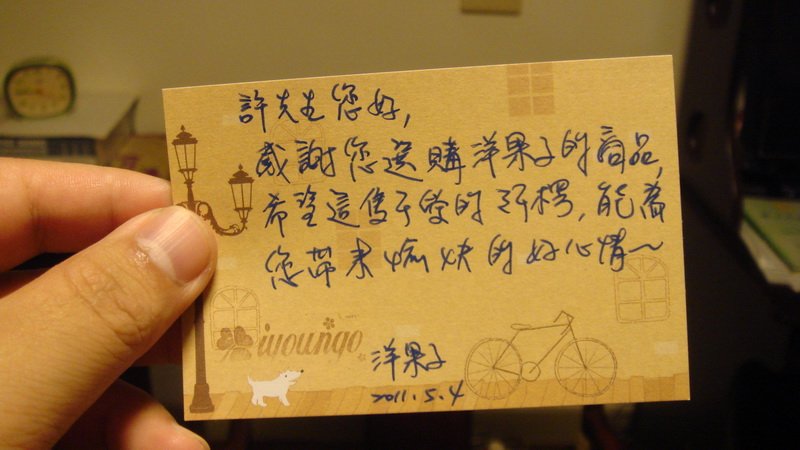 許先生您好,
感謝您選購洋果子的商品,
希望這隻可愛的, 能為
您帶來愉快的好心情～
洋果子
2011.5.4